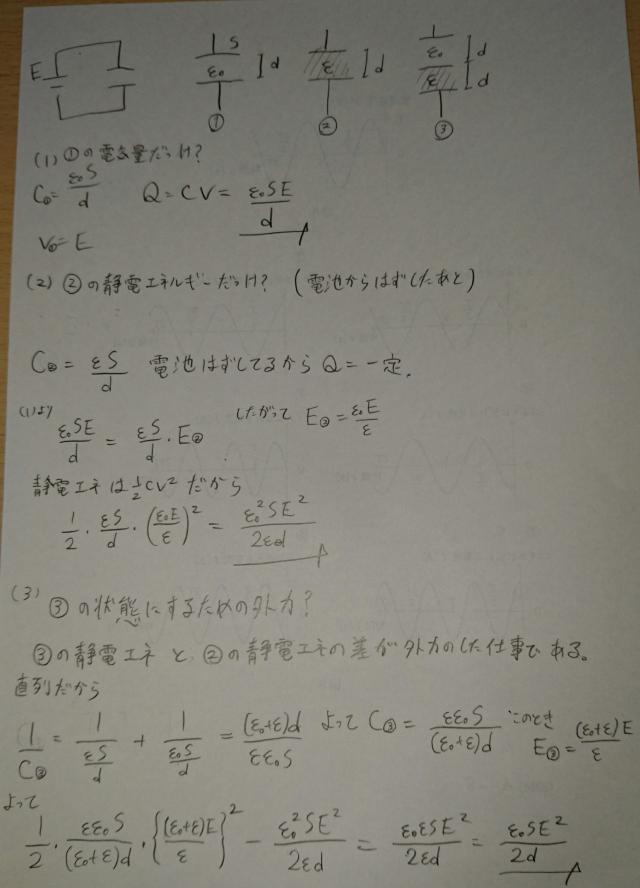 E S ε₀ d ① ε d ② ε₀ ε d d ③
(1) ①の電気量だっけ?
C① = ε₀S/d Q = CV = ε₀SE/d
V① = E
(2) ②の静電エネルギーだっけ? (電池からはずしたあと)
C② = εS/d 電池はずしてるから Q = 一定.
(1)より ε₀SE/d = εS/d・E② したがって E② = ε₀E/ε
静電エネは 1/2 CV² だから
1/2・εS/d・(ε₀E/ε)² = ε₀²SE²/2εd
(3) ③の状態にするための外力?
③の静電エネと、②の静電エネの差が外力のした仕事である。
直列だから
1/C③ = 1/(εS/d) + 1/(ε₀S/d) = (ε₀+ε)d/εε₀S よって C③ = εε₀S/(ε₀+ε)d このとき E③ = (ε₀+ε)E/ε
よって
1/2・εε₀S/(ε₀+ε)d・{(ε₀+ε)E/ε}² - ε₀²SE²/2εd = ε₀εSE²/2εd = ε₀SE²/2d